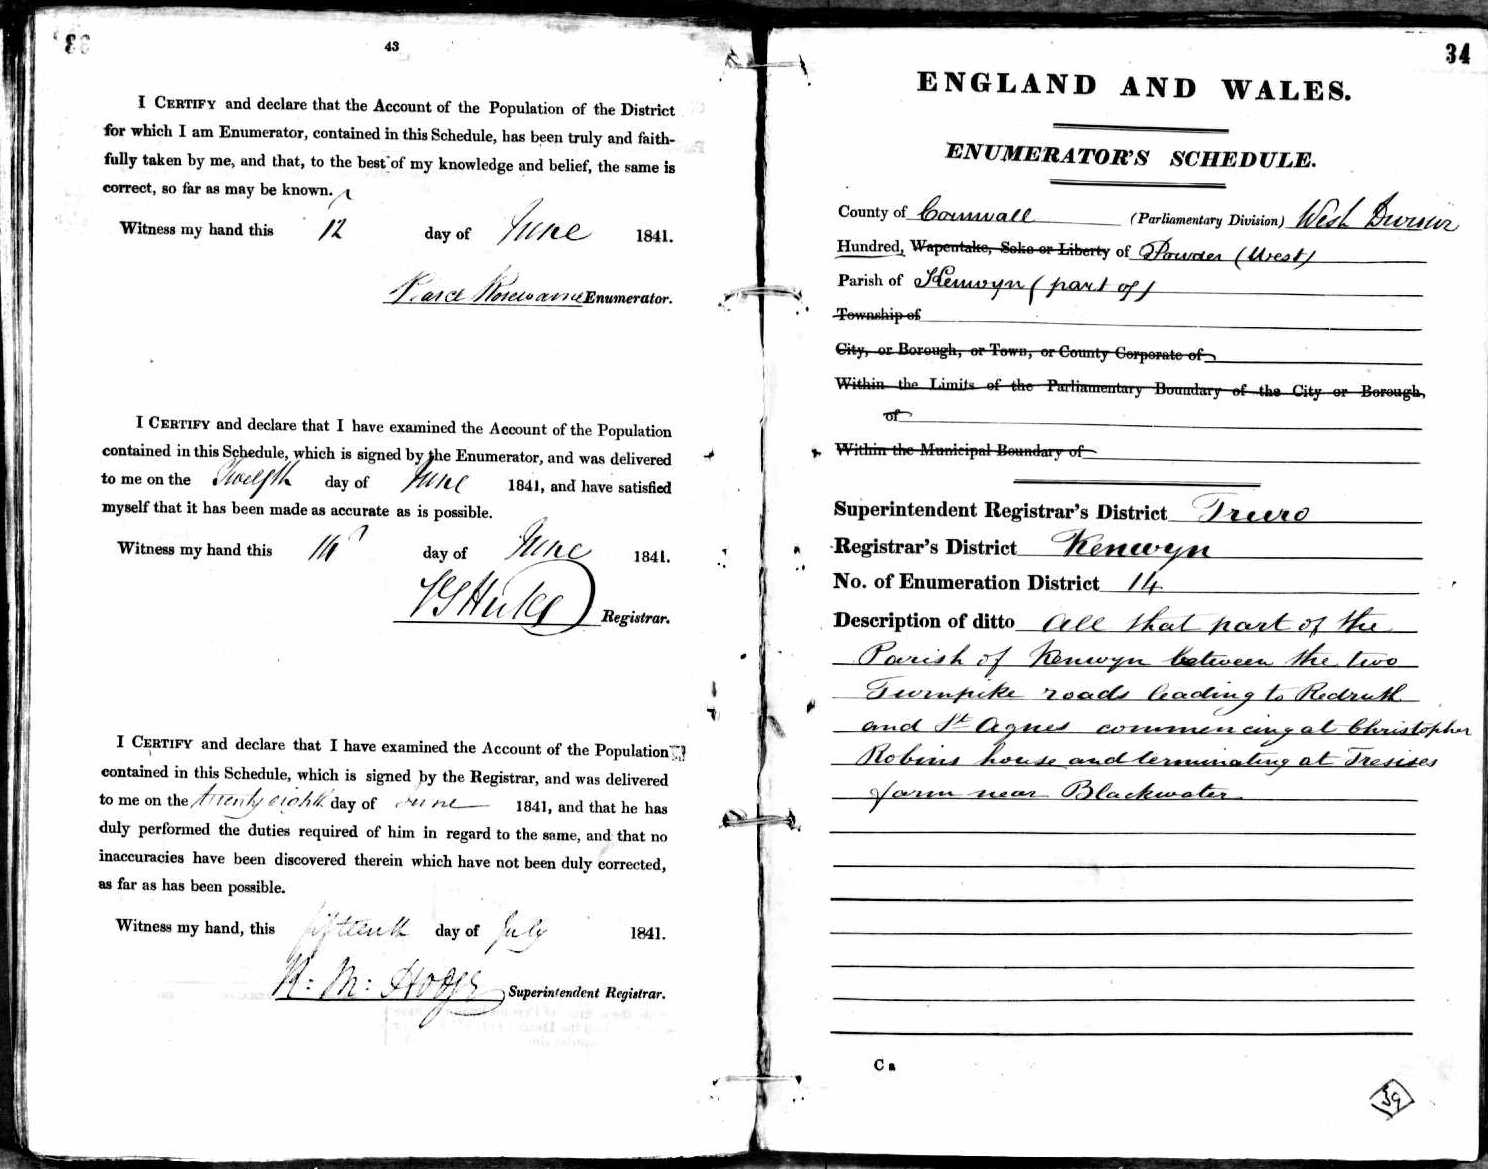 43
I CERTIFY and declare that the Account of the Population of the District
for which I am Enumerator, contained in this Schedule, has been truly and faith-
fully taken by me, and that, to the best of my knowledge and belief, the same is
correct, so far as may be known.
Witness my hand this 12 day of June 1841.
Enumerator.
I CERTIFY and declare that I have examined the Account of the Population
contained in this Schedule, which is signed by the Enumerator, and was delivered
to me on the Twelfth day of June 1841, and have satisfied
myself that it has been made as accurate as is possible.
Witness my hand this day of June 1841.
Registrar.
I CERTIFY and declare that I have examined the Account of the Population
contained in this Schedule, which is signed by the Registrar, and was delivered
to me on the twenty eighth day of June 1841, and that he has
duly performed the duties required of him in regard to the same, and that no
inaccuracies have been discovered therein which have not been duly corrected,
as far as has been possible.
Witness my hand, this fifteenth day of July 1841.
Superintendent Registrar.
34
ENGLAND AND WALES.
ENUMERATOR'S SCHEDULE.
County of Cornwall (Parliamentary Division) West Division
Hundred, Wapentake, Soke or Liberty of Powder (West)
Parish of Kenwyn (part of)
Township of
City, or Borough, or Town, or County Corporate of
Within the Limits of the Parliamentary Boundary of the City or Borough,
of
Within the Municipal Boundary of
Superintendent Registrar's District Truro
Registrar's District Kenwyn
No. of Enumeration District 14
Description of ditto All that part of the
Parish of Kenwyn between the two
Turnpike roads leading to Redruth
and St Agnes commencing at Christopher
Robins house and terminating at Tresises
farm near Blackwater
C a
39